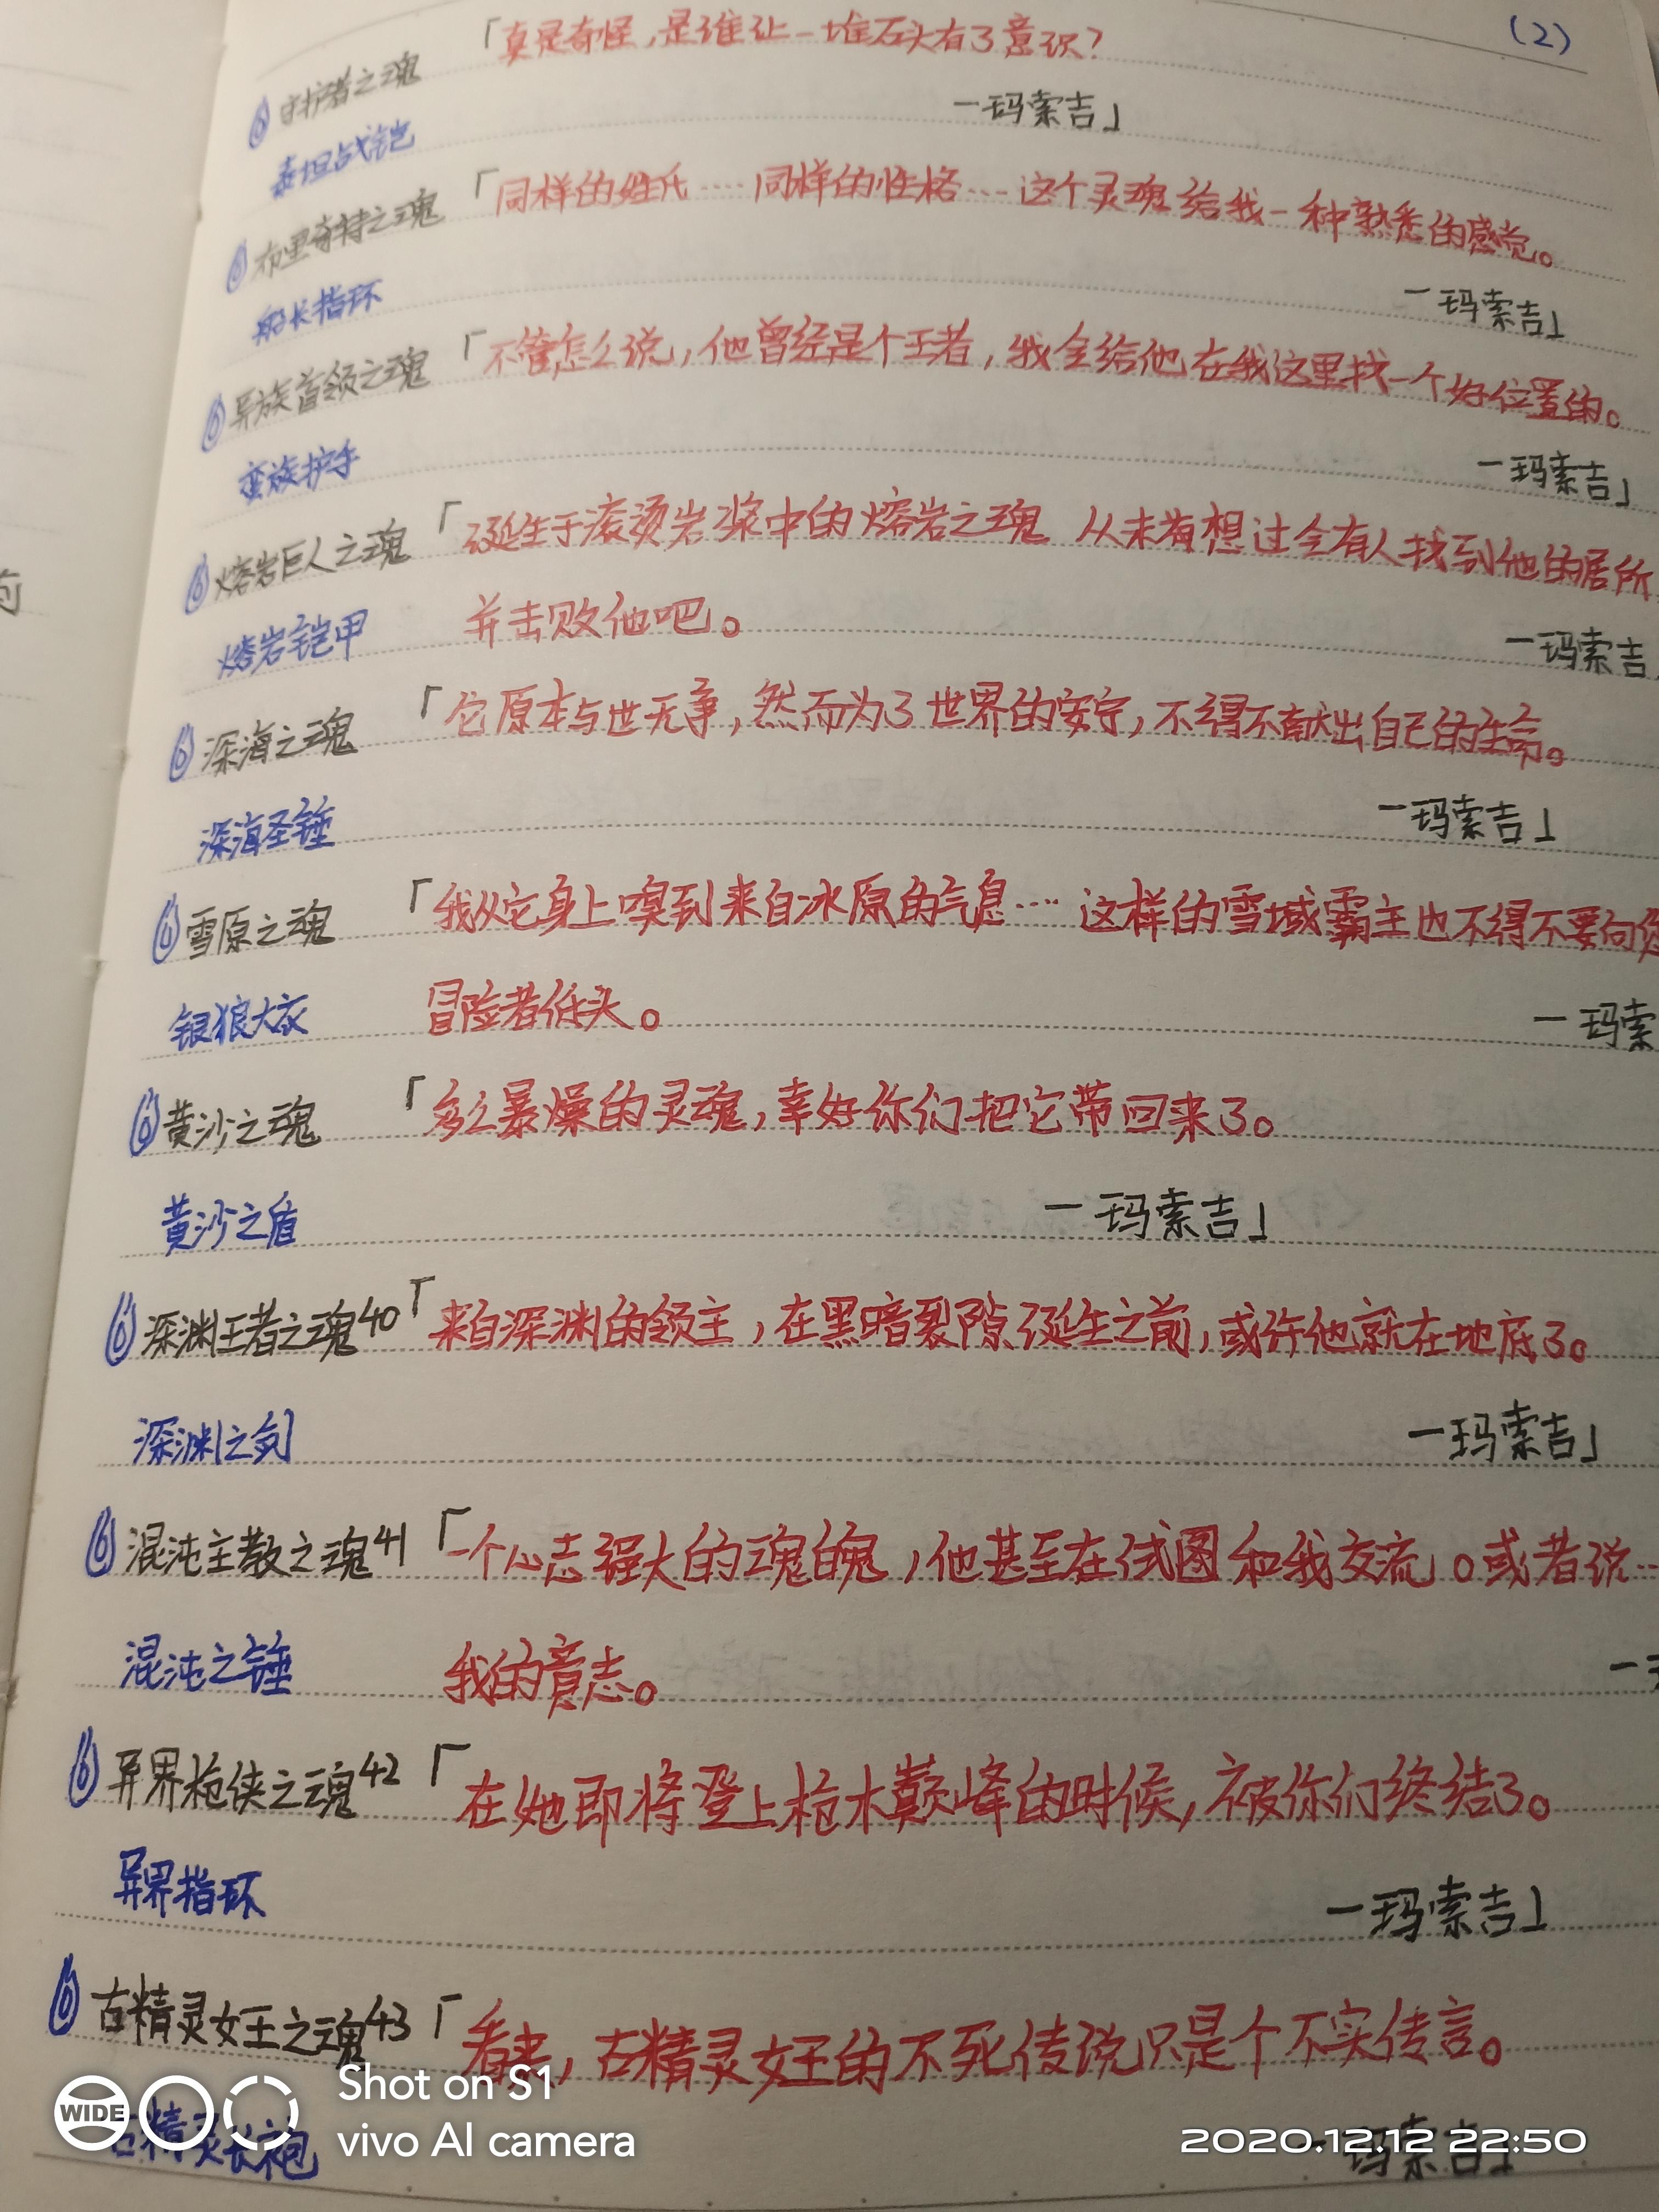 (2)
守护者之魂「真是奇怪,是谁让一堆石头有了意识?
泰坦战铠 —玛索吉」
布里奇特之魂「同样的姓氏……同样的性格……这个灵魂给我一种熟悉的感觉。
船长指环 —玛索吉」
异族首领之魂「不管怎么说,他曾经是个王者,我会给他在我这里找一个好位置的。
蛮族护手 —玛索吉」
熔岩巨人之魂「诞生于滚烫岩浆中的熔岩之魂 从未有想过会有人找到他的居所
熔岩铠甲 并击败他吧。 —玛索吉
深海之魂「它原本与世无争,然而为了世界的安宁,不得不献出自己的生命。
深海圣锤 —玛索吉」
雪原之魂「我从它身上嗅到来自冰原的气息……这样的雪域霸主也不得不要向你
银狼大衣 冒险者低头。 —玛索
黄沙之魂「多么暴燥的灵魂,幸好你们把它带回来了。
黄沙之盾 —玛索吉」
深渊王者之魂40「来自深渊的领主,在黑暗裂隙诞生之前,或许他就在地底了。
深渊之剑 —玛索吉」
混沌主教之魂41「一个心志强大的魂魄,他甚至在试图和我交流。或者说…
混沌之锤 我的意志。 —
异界枪侠之魂42「在她即将登上枪术巅峰的时候,被你们终结了。
异界指环 —玛索吉」
古精灵女王之魂43「看来,古精灵女王的不死传说只是个不实传言。
古精灵长袍 —玛索吉」
WIDE
Shot on S1
vivo AI camera
2020.12.12 22:50